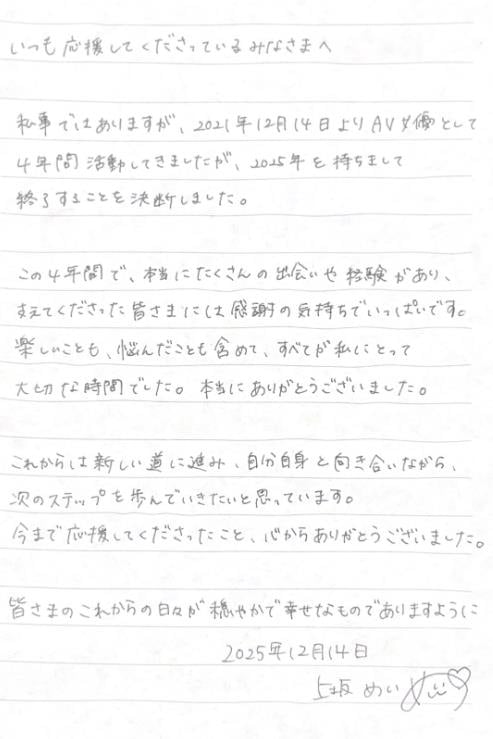 いつも応援してくださっているみなさまへ
私事ではありますが、2021年12月14日よりAV女優として
4年間活動してきましたが、2025年を持ちまして
終了することを決断しました。
この4年間で、本当にたくさんの出会いや経験があり、
支えてくださった皆さまには感謝の気持ちでいっぱいです。
楽しいことも、悩んだことも含めて、すべてが私にとって
大切な時間でした。本当にありがとうございました。
これからは新しい道に進み、自分自身と向き合いながら、
次のステップを歩んでいきたいと思っています。
今まで応援してくださったこと、心からありがとうございました。
皆さまのこれからの日々が穏やかで幸せなものでありますように
2025年12月14日
上坂めい